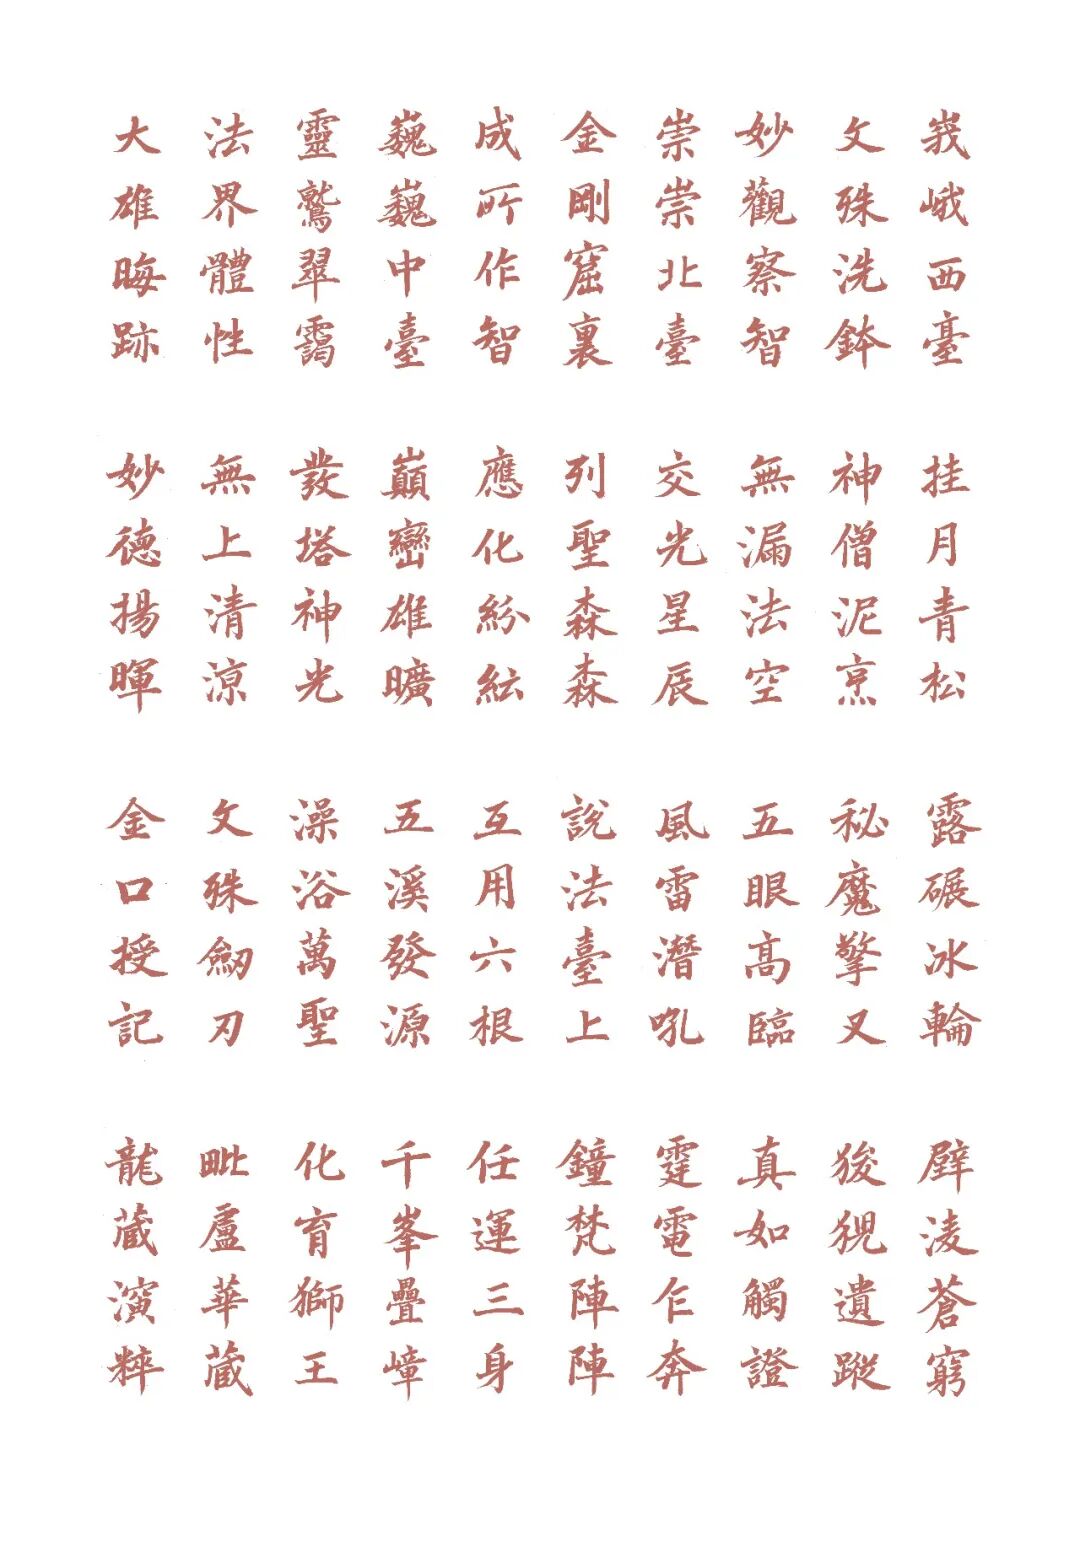 峩峨西臺　挂月青松　露碾冰輪　壁凌蒼窮
文殊洗鉢　神僧泥烹　秘魔擎叉　狻猊遺蹤
妙觀察智　無漏法空　五眼高臨　真如觸證
崇崇北臺　交光星辰　風雷潛吼　霆電乍奔
金剛窟裏　列聖森森　說法臺上　鐘梵陣陣
成所作智　應化紛紜　互用六根　任運三身
巍巍中臺　巔巒雄曠　五溪發源　千峯疊嶂
靈鷲翠靄　髮塔神光　澡浴萬聖　化育獅王
法界體性　無上清涼　文殊劒刃　毗盧華藏
大雄晦跡　妙德揚暉　金口授記　龍藏演粹